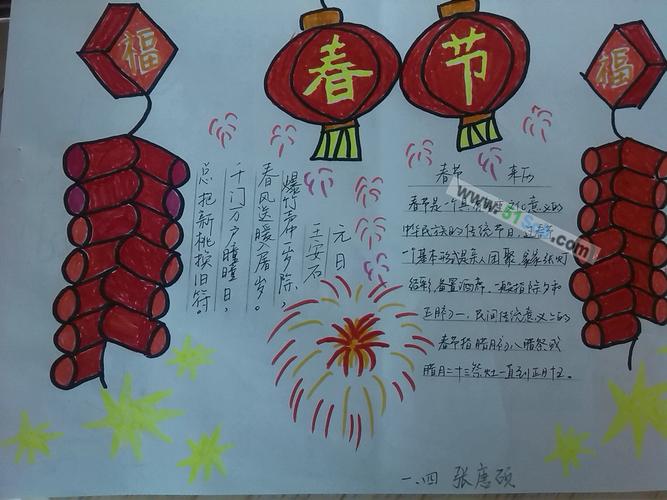 福
春节
福
元日
王安石
爆竹声一岁除，
春风送暖入屠岁。
千门万户瞳瞳日，
总把新桃换旧符。
春节 来历
春节是个 意义的
中华民族的传统节日
一个基本形式是亲人团聚 家家张灯
结彩 备置酒席，一般指除夕和
正月初一，民间传统意义上的
春节指腊月初八腊祭或
腊月二十三祭灶一直到正月十五。
一、四 张惠硕